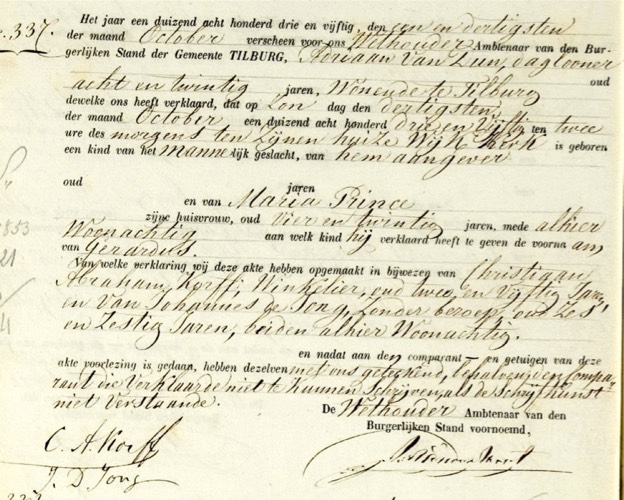 337.
Het jaar een duizend acht honderd drie en vijftig, den een en dertigsten
der maand October verscheen voor ons Wethouder Ambtenaar van den Bur-
gerlijken Stand der Gemeente TILBURG, Adriaan van Zun, daglooner
oud
acht en twintig jaren, Wonende te Tilburg
dewelke ons heeft verklaard, dat op Zon dag den dertigsten
der maand October een duizend acht honderd drie en vijftig ten twee
ure des morgens ten zijnen huize Wijk Kerk is geboren
een kind van het manne lijk geslacht, van hem aangever
oud jaren
en van Maria Prince
zijne huisvrouw, oud vier en twintig jaren, mede alhier
Woonachtig aan welk kind hij verklaard heeft te geven de voorna am
van Gerardus.
Van welke verklaring wij deze akte hebben opgemaakt in bijwezen van Christiaan
Abraham Korff, Winkelier, oud twee en Vijftig Jaren,
en van Johannes de Jong, zonder beroep, oud Zes
en Zestig Jaren, beiden alhier Woonachtig.
en nadat aan den comparant en getuigen van deze
akte voorlezing is gedaan, hebben dezelven met ons geteekend, behalven den Compa-
rant die Verklaarde niet te Kunnen Schrijven, als de Schrijfkunst
niet Verstaande.
De Wethouder Ambtenaar van den
Burgerlijken Stand voornoemd,
C. A. Korff
J. D Jong
1853
21